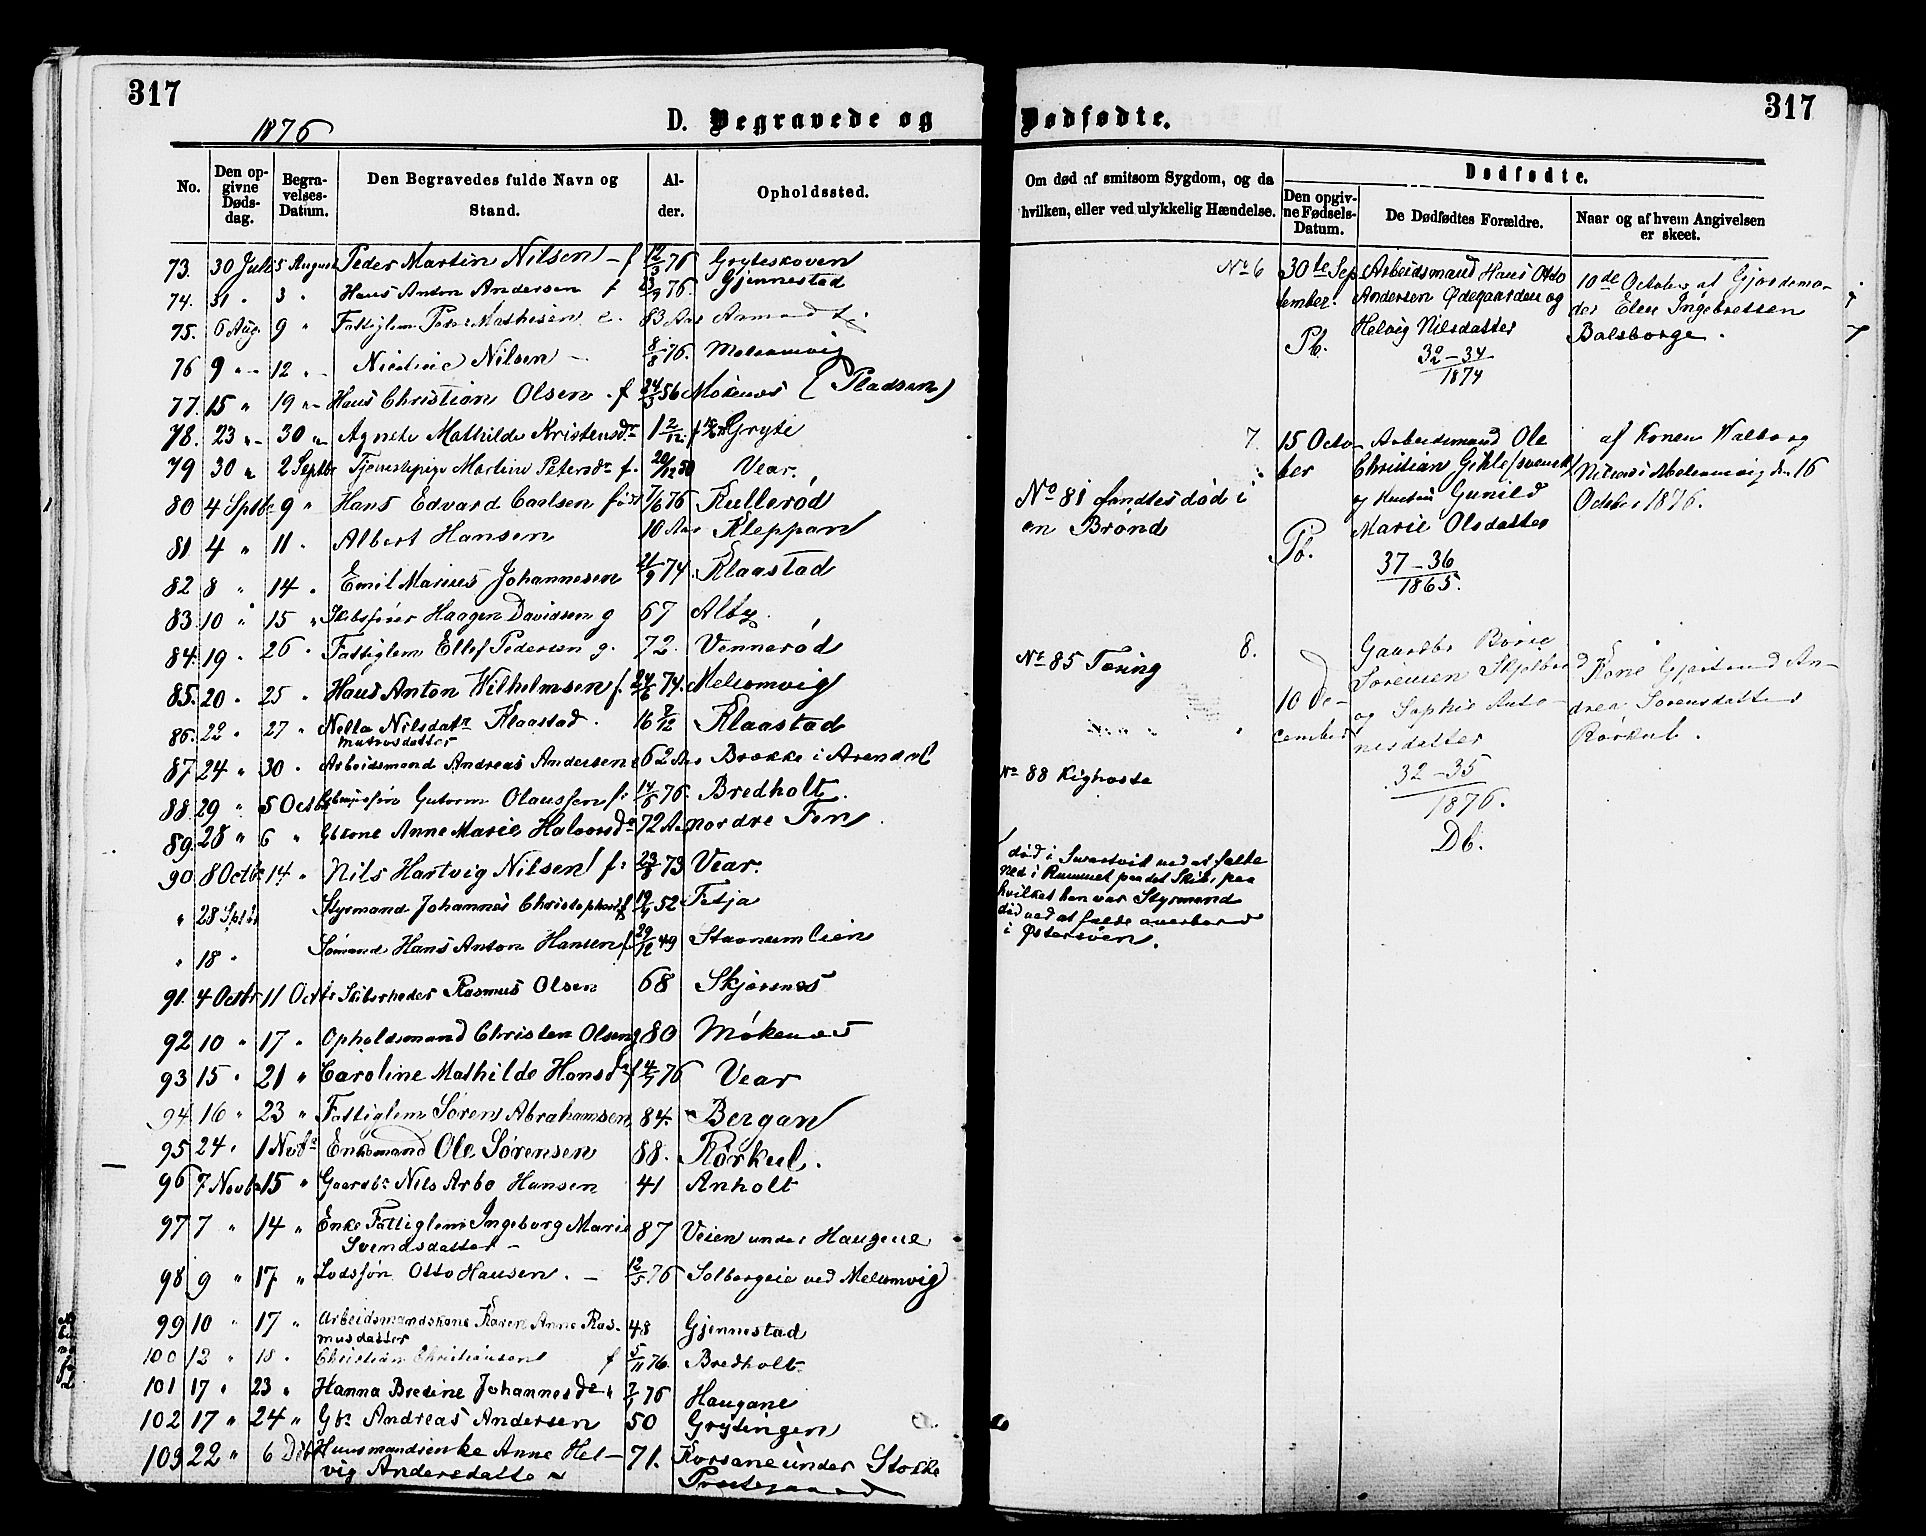 317
1876
D. Begravede og
No.
Den op-
givne
Døds-
dag.
Begra-
velses-
Datum.
Den Begravedes fulde Navn og
Stand.
Al-
der.
Opholdssted.
73. 30 Juli 5 August Peder Martin Nilsen - f 12/3 76 Gryteskoven
74. 31 " 3 " Hans Anton Andersen f 9 76. Gjennestad
75. 6 Aug. 9 " Fattiglem Peder Mathisen 83 Aar
76 9 " 12 " Nilsen - 8/8 76. Melsomvig
77. 15 " 19 " Hans Christian Olsen. f 24/3 56 Møkenes (Pladsen)
78. 23 " 30 " Agnete Mathilde Kristensdr 1 2/12. Gryte
79 30 " 2 Septbr Tjenstepige Martine Petersdr f. 20/12 50 Vear.
80 4 Sptbr 9 " Hans Edvard Carlsen født 7/6 76 Kullerød
81 4 " 11 " Albert Hansen 10 Aar Kleppan
82 8 " 14 " Emil Marius Johannesen 21/9 74. Klaastad
83. 10 " 15 " Skibsfører Haagen Davidsen g 67 Alby
84. 19 " 26 " Fattiglem Ellef Pedersen g. 72. Vennerød
85. 20 " 25 " Hans Anton Wilhelmsen f. 24/6 74. Melsomvig
86. 22 " 27 " Nella Nilsdatr Klaastad. 16 2/12 Klaastad
Matrosdatter
87 24 " 30 " Arbeidsmand Andreas Andersen 62 Aar Brække i Arendal
88. 29 " 5 Octbr Guttorm Olaussen f: 14/5 76. Bredholt.
89. 28 " 6 " Gbkone Anne Marie Halvorsdr 72 Aar nordre Fen
90 8 Octbr 14 " Nils Hartvig Nilsen f: 23/8 73 Vear.
" 28 Sptbr Styrmand Johannes Christophersen 19 52 Fetja
" 18 " Sømand Hans Anton Hansen f 29/12 49 Staanumlien
91. 4 Octbr 11 Octbr Skibsrheder Rasmus Olsen 68 Skjærsnes
92 10 " 17 " Opholdsmand Christen Olsen g 80 Møkenes
93 15 " 21 " Caroline Mathilde Hansdr f 4/7 76 Vear
94 16 " 23 " Fattiglem Søren Abrahamsen 84. Bergan
95 24 " 1 Novbr Enkemand Ole Sørensen 88. Rørkul.
96 7 Novbr 15 " Gaardbr Nils Arbo Hansen 41 Anholt
97 7 " 14 " Enke Fattiglem Ingeborg Marie 87 Veien under Haugene
Svendsdatter -
98 9 " 17 " Lodssøn Otto Hansen. - 12/5 76 Solbergeie ved Melsomvig
99 10 " 17 " Arbeidsmandskone Karen Anne Ras- 48 Gjennestad
musdatter
100 12 " 18 " Christian Christiansen f 5/11 76. Bredholt
101 17 " 23 " Hanna Bredine Johannesdr 76 Haugane
102 17 " 24 " Gbr Andreas Andersen 50 Grytingen
103 22 " 6 Dcbr Huusmandsenke Anne Hel- 71. Korsane under Stokke
vig Andersdatter Prestegaard
317
Dødfødte.
Om død af smitsom Sygdom, og da
hvilken, eller ved ulykkelig Hændelse.
Dødfødte.
Den opgiv-
ne Fødsels-
Datum.
De Dødfødtes Forældre.
Naar og af hvem Angivelsen
er skeet.
No 6 30te Sep- Arbeidsmand Hans Otto 10de October af Gjordemo-
tember. Andersen Ødegaarden og der Elen Ingebretsen
Pb. Helvig Nilsdatter Balsborge.
32-34
1874
7. 15 Octo- Arbeidsmand Ole af Konen Walborg
ber Christian Gihle (svensk) Nilsen i Melsomvig den 16
og Hustru Gunild October 1876.
Pb. Marie Olsdatter
37-36
1865.
No 81 fandtes død i
en Brønd
No 85 Tæring
" " "
No 88 Kighoste
8. 10 De- Gaardbr
cember Sørensen Kone Gjertrud An-
og Sophie Anto- drea Sørensdatter
nesdatter Rørkul.
32-35
1876.
Db.
død i ved at falde
ned i Rummet paa det Skib, paa
hvilket han var Styrmand
død ved at falde overbord
i Østersøen.